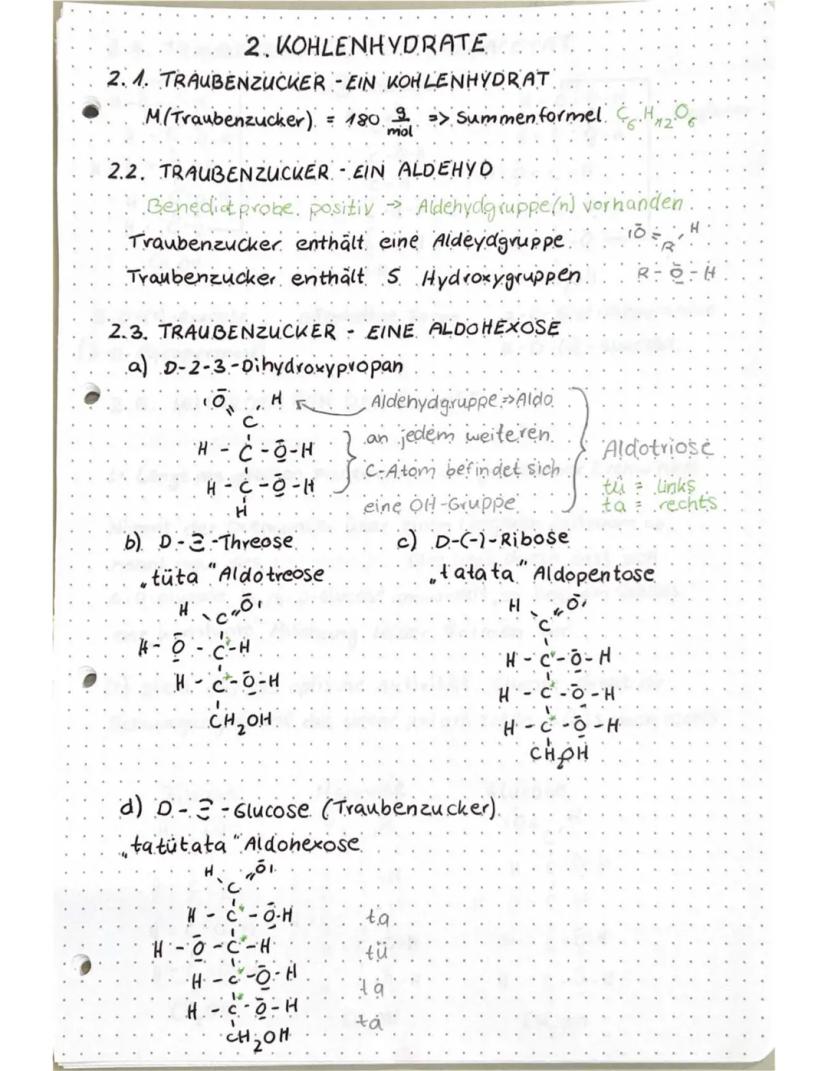 2. KOHLENHYDRATE
2.1. TRAUBENZUCKER - EIN KOHLENHYDRAT
M(Traubenzucker) = 180 g/mol => Summenformel C₆H₁₂O₆
2.2. TRAUBENZUCKER - EIN ALDEHYD
Benedictprobe positiv → Aldehydgruppe(n) vorhanden
Traubenzucker enthält eine Aldeydgruppe IO̅ = R , H
Traubenzucker enthält 5 Hydroxygruppen R - O̲̅ - H
2.3. TRAUBENZUCKER - EINE ALDOHEXOSE
a) D-2-3-Dihydroxypropan
IO̅ H Aldehydgruppe => Aldo
C
an jedem weiteren
H - C - O̲̅ - H C-Atom befindet sich Aldotriose
H - C - O̲̅ - H eine OH-Gruppe tü = links
H ta = rechts
b) D-Ξ-Threose c) D-(-)-Ribose
„tüta" Aldotreose „tatata" Aldopentose
H C O̅I H C O̅I
H - O̲̅ - C* - H H - C* - O̅ - H
H - C* - O̲̅ - H H - C* - O̲̅ - H
CH₂OH H - C* - O̲̅ - H
CH₂OH
d) D-Ξ-Glucose (Traubenzucker)
„tatütata" Aldohexose
H C O̅I
H - C* - O̲̅ - H ta
H - O̲̅ - C* - H tü
H - C* - O̲̅ - H ta
H - C* - O̲̅ - H ta
CH₂OH